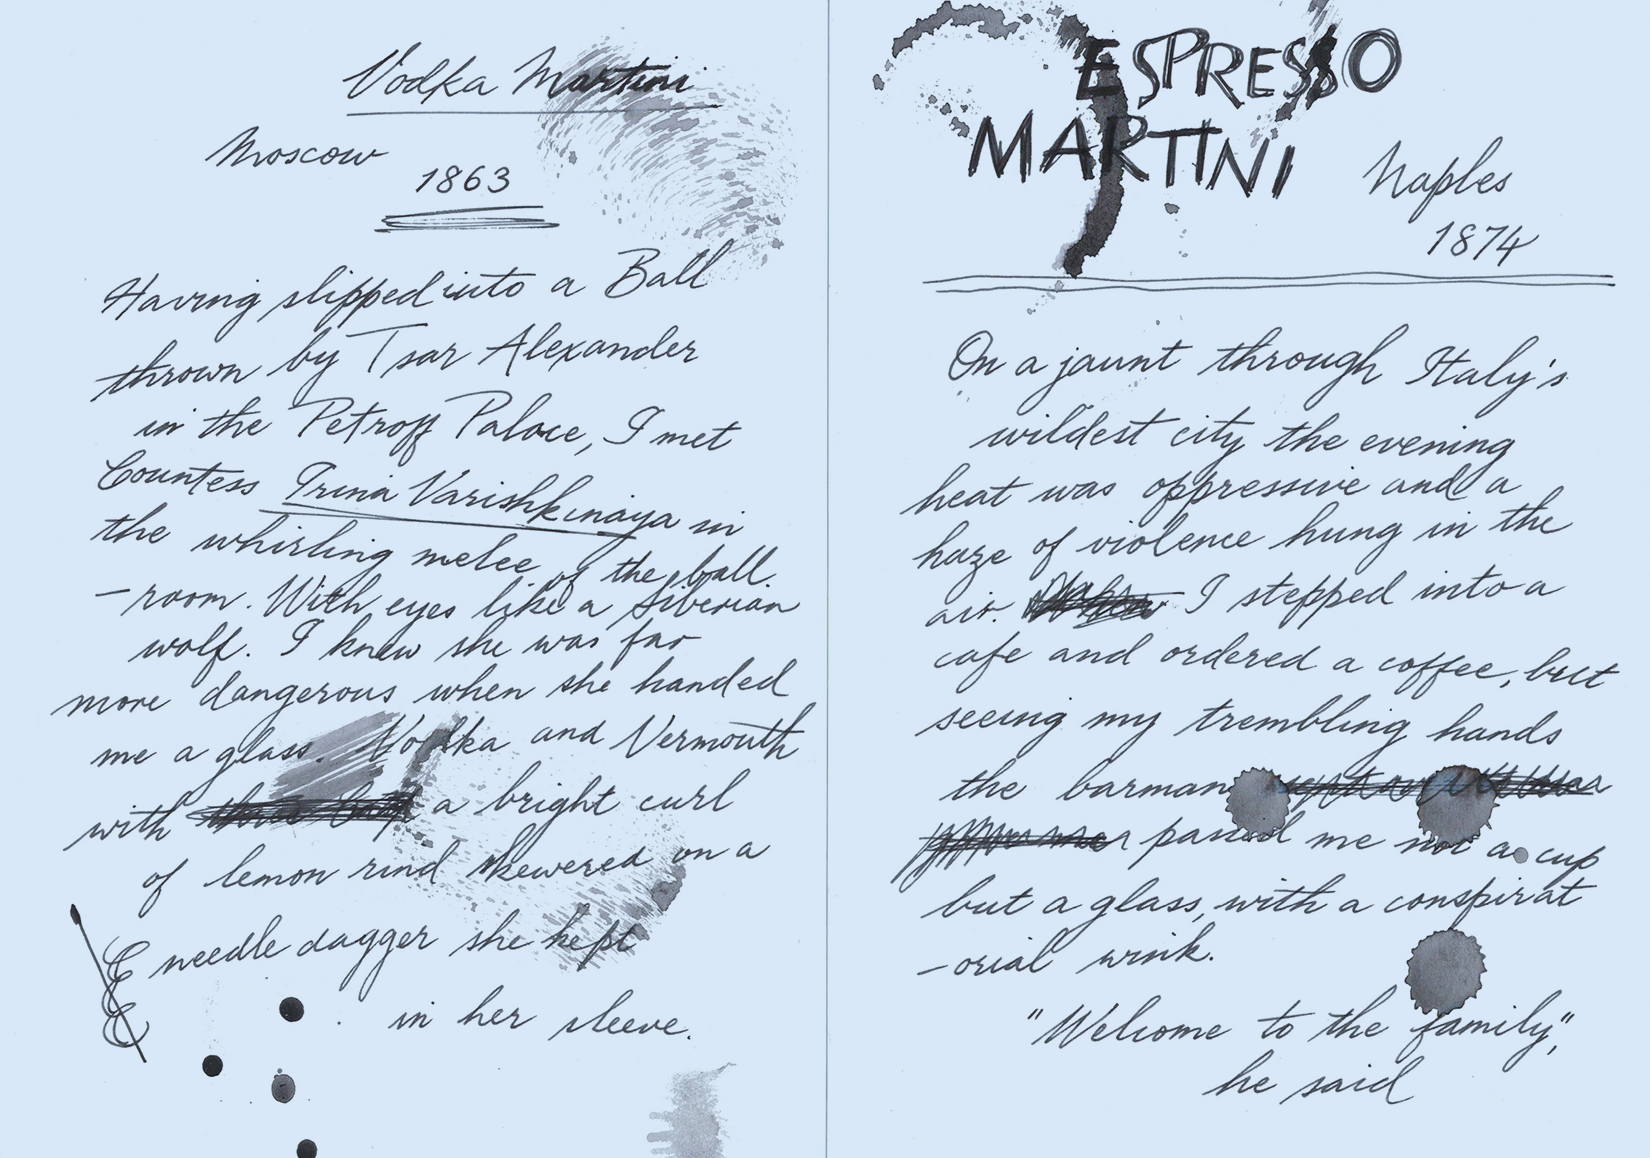 Vodka Martini
Moscow
1863
Having slipped into a Ball
thrown by Tsar Alexander
in the Petroff Palace, I met
Countess Irina Varishkinaya in
the whirling melee of the ball
-room. With eyes like a Siberian
wolf. I knew she was far
more dangerous when she handed
me a glass. Vodka and Vermouth
with a bright curl
of lemon rind skewered on a
needle dagger she kept
in her sleeve.
ESPRESSO
MARTINI
Naples
1874
On a jaunt through Italy's
wildest city the evening
heat was oppressive and a
haze of violence hung in the
air. I stepped into a
cafe and ordered a coffee, but
seeing my trembling hands
the barman
passed me not a cup
but a glass, with a conspirat
-orial wink.
"Welcome to the family",
he said